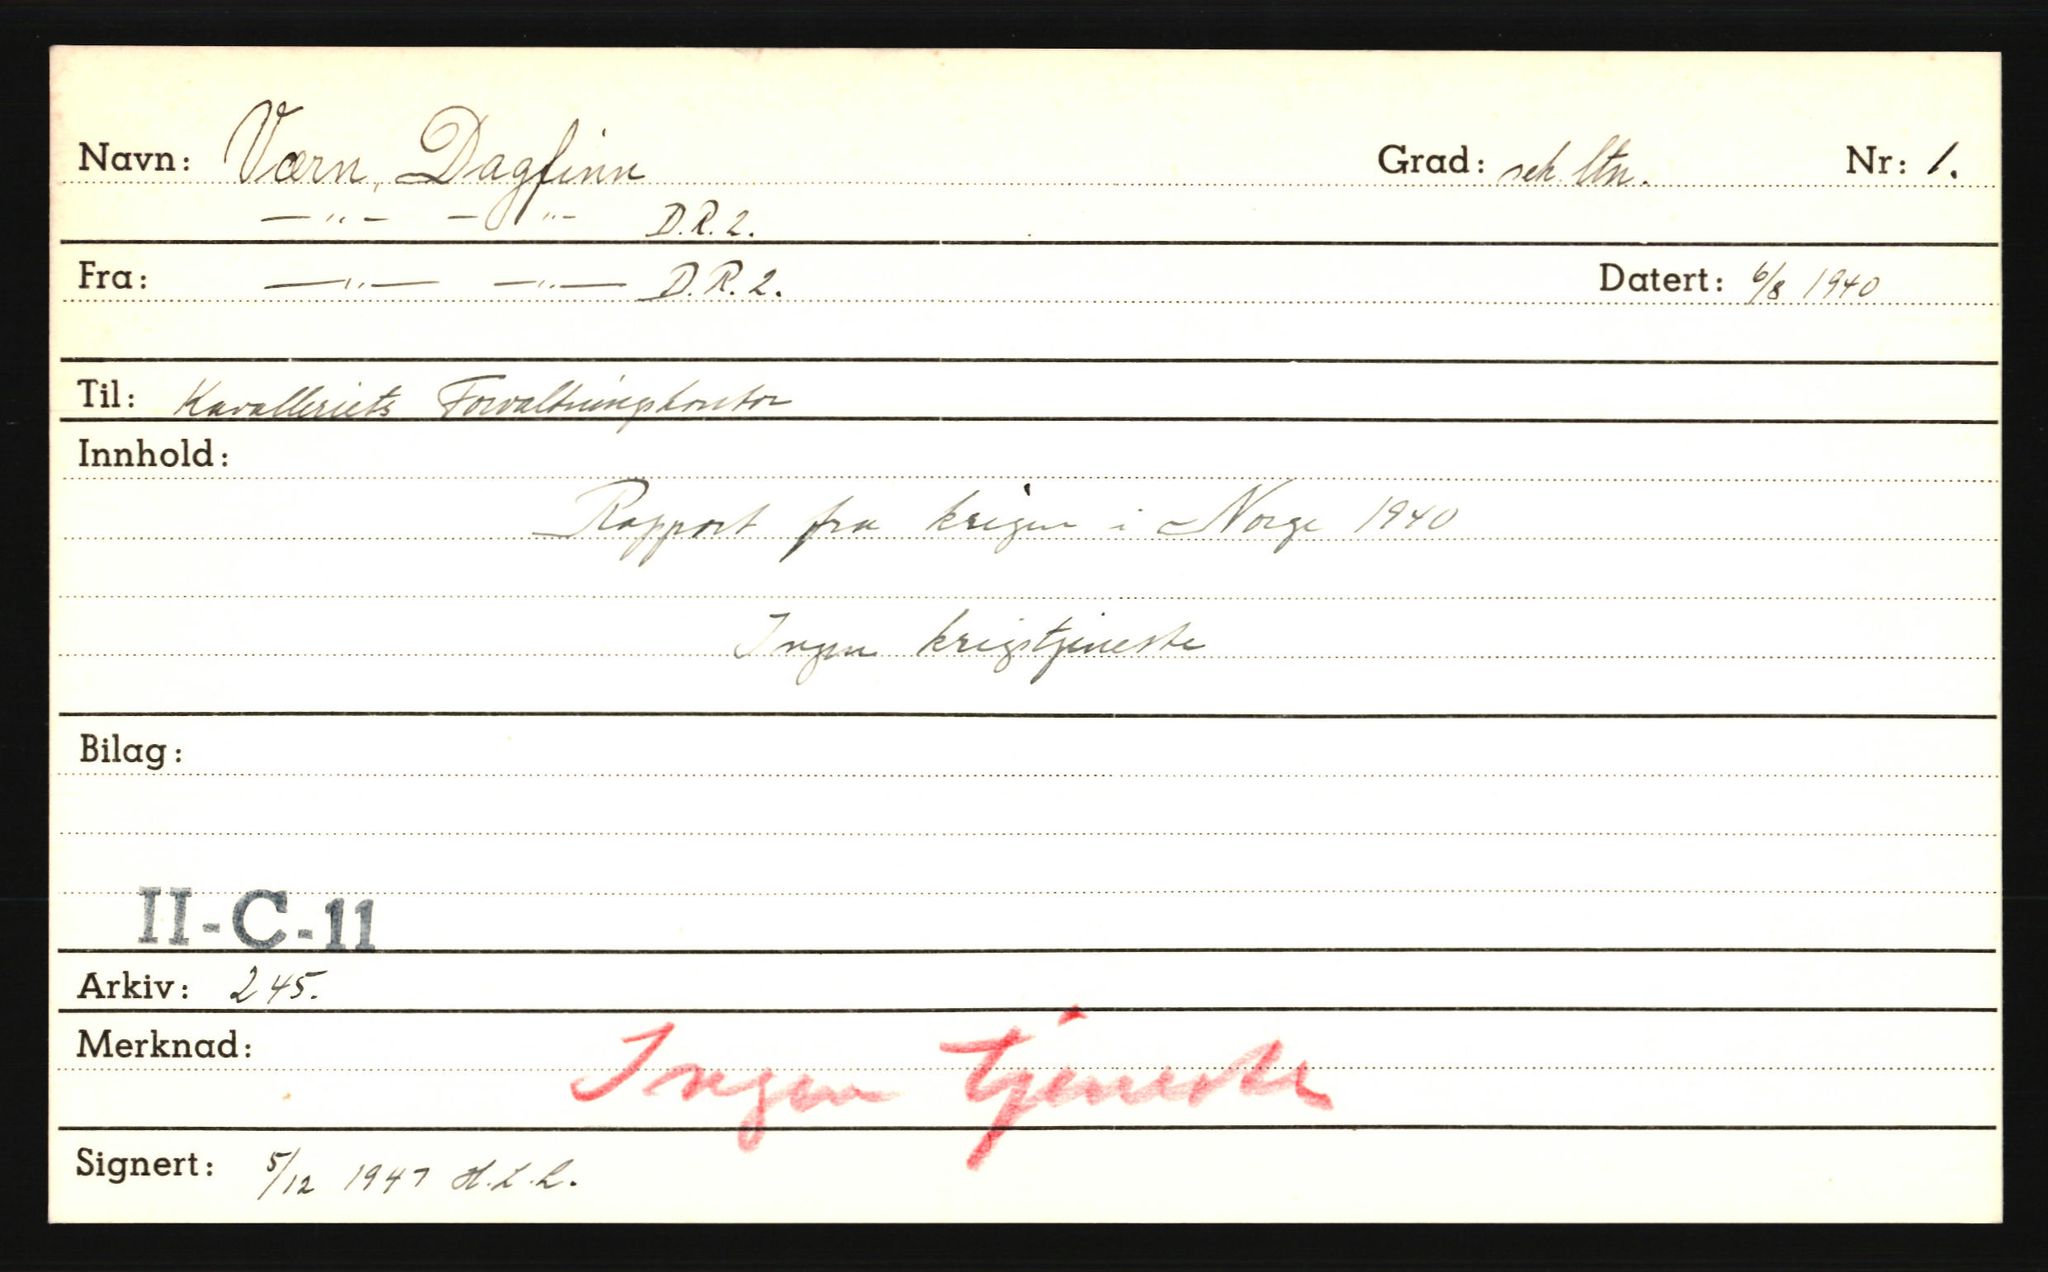 Navn: Værn, Dagfinn Grad: sek. ltn. Nr: 1.
— " — — " — D.R.2.
Fra: — " — — " — D.R.2. Datert: 6/8 1940
Til: Kavalleriets Forvaltningskontor
Innhold:
Rapport fra krigen i Norge 1940
Ingen krigstjeneste
Bilag:
II-C-11
Arkiv: 245.
Merknad: Ingen tjeneste
Signert: 5/12 1947 H.L.L.